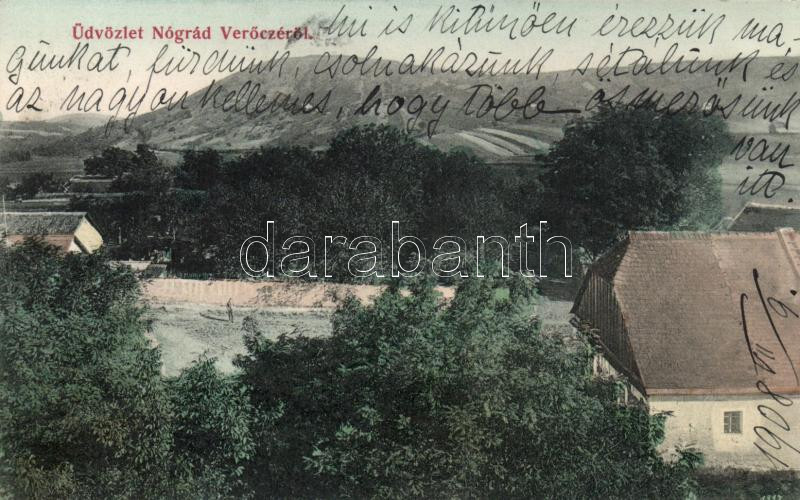 Üdvözlet Nógrád Verőczéről.
Mi is kitünően érezzük ma-
gunkat, fürdünk, csolnakázunk, sétálunk és
az nagyon kellemes, hogy több ösmerősünk
van
itt.
darabanth
1908 VII/9.